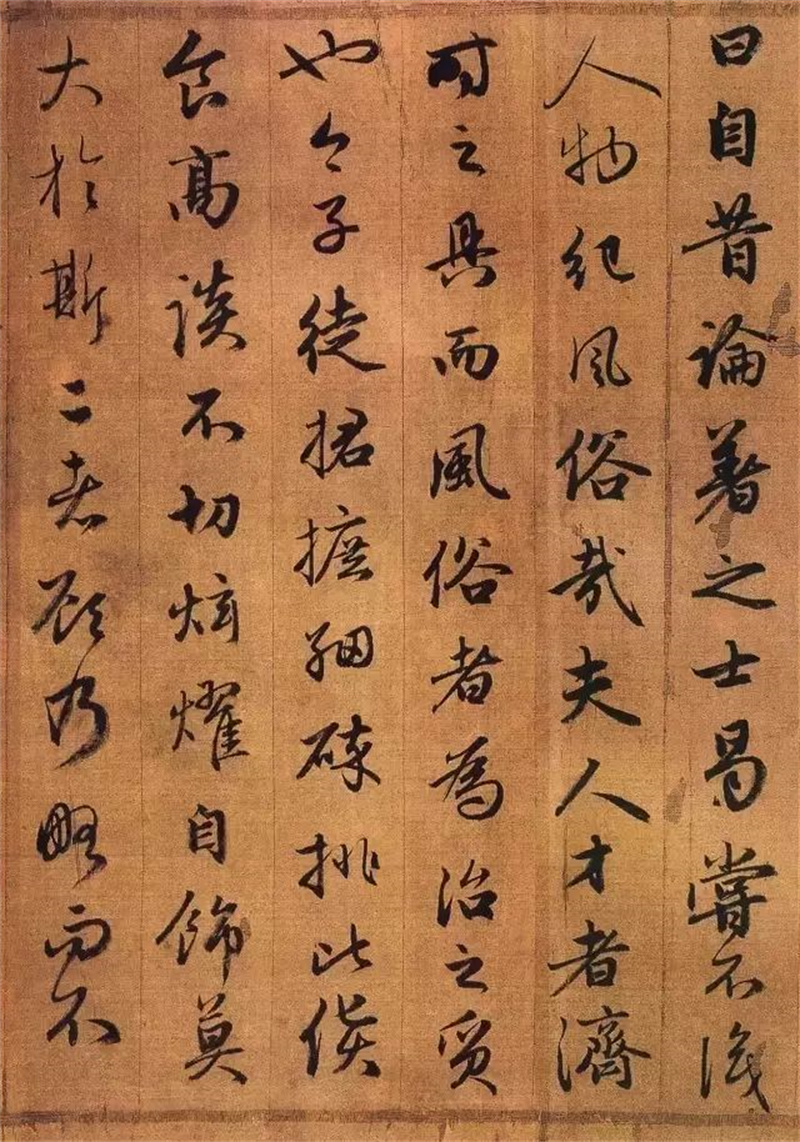 曰自昔論著之士曷嘗不識
人物紀風俗哉夫人才者濟
時之具而風俗者為治之質
也今子徒捃摭細碎排比
食高談不切炫耀自飾莫
大於斯二者顧乃略而不